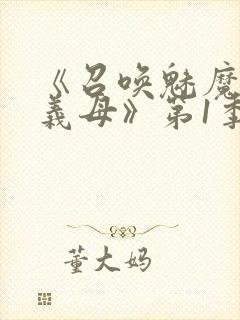 《召唤魅魔
義母》第1季
董大妈